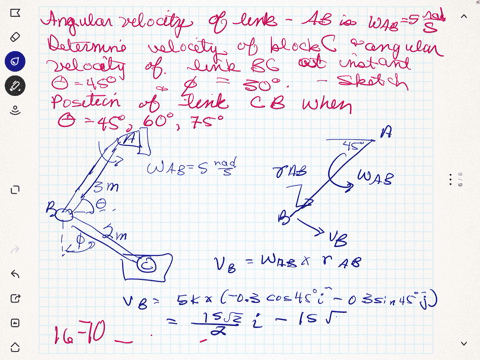 Angular velocity of link - AB is ωAB = 5 rad/s
Determine velocity of block C & angular
velocity of link BC at instant
θ = 45° & φ = 30°. - Sketch
Position of link CB when
θ = 45°, 60°, 75°
A
ωAB = 5 rad/s
3m
B
θ
φ
2m
C
A
45°
rAB
ωAB
B
VB
VB = ωAB x rAB
VB = 5k x (-0.3 cos45° i - 0.3 sin45° j)
= 15√2/2 i - 15√
16-70